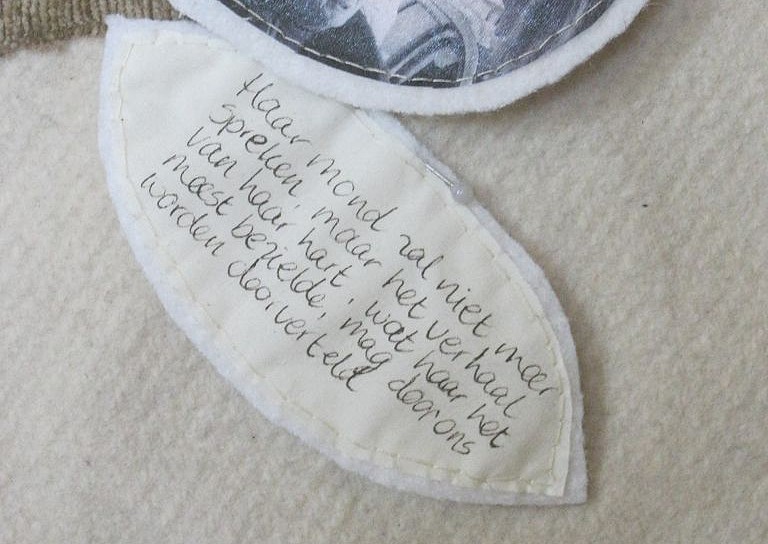 Haar mond zal niet meer
spreken, maar het verhaal
van haar hart, wat haar het
meest bezielde, mag door ons
worden doorverteld